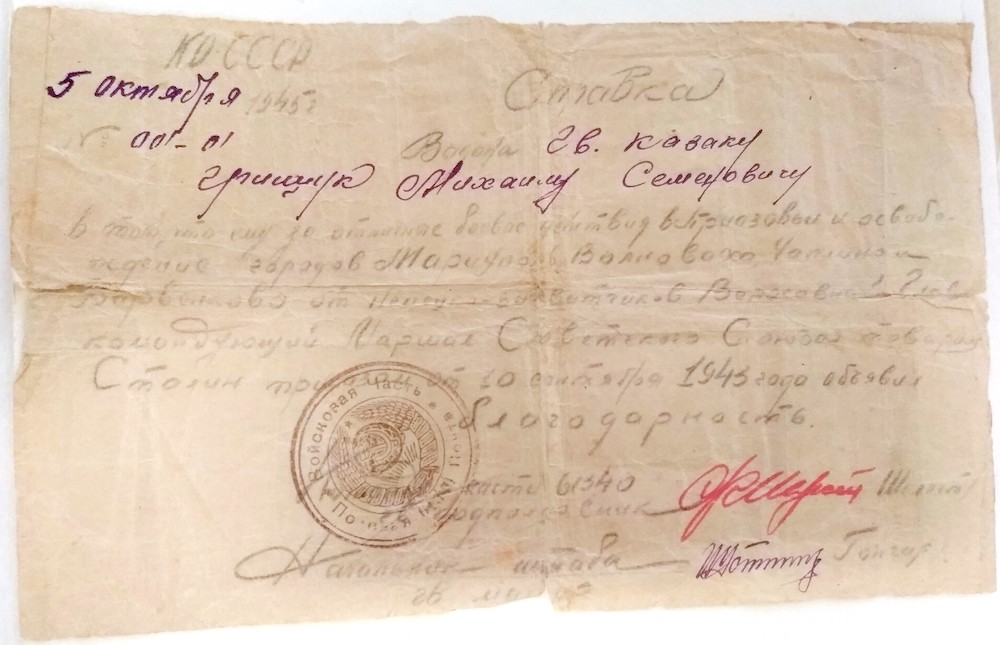 НО-СССР
5 октября 1945 г
Ставка
№ 001-01
гв. казаку
Грищук Михаилу Семеновичу
в том, что ему за отличные боевые действия в Приазовьи и освобо-
ждение городов Мариуполь, Волноваха, Чаплино и
от Верховный Глав
командующий Маршал Советского Союза товарищ
Сталин приказом от 10 сентября 1943 года объявил
благодарность.
Войсковая часть
Полевая почта
части 61340
подполковник
Начальник штаба Гончар
гв. майор